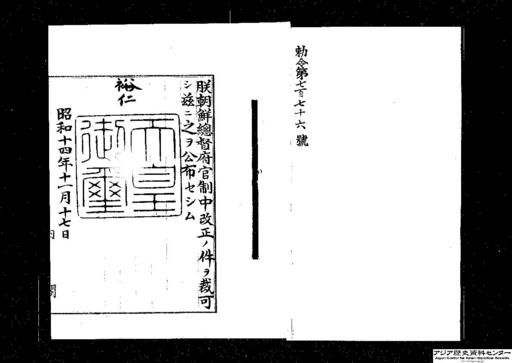 勅令第七百七十六號
朕朝鮮總督府官制中改正ノ件ヲ裁可
シ茲ニ之ヲ公布セシム
裕仁
天皇
御璽
昭和十四年十一月十七日
内閣
アジア歴史資料センター
Japan Center for Asian Historical Records